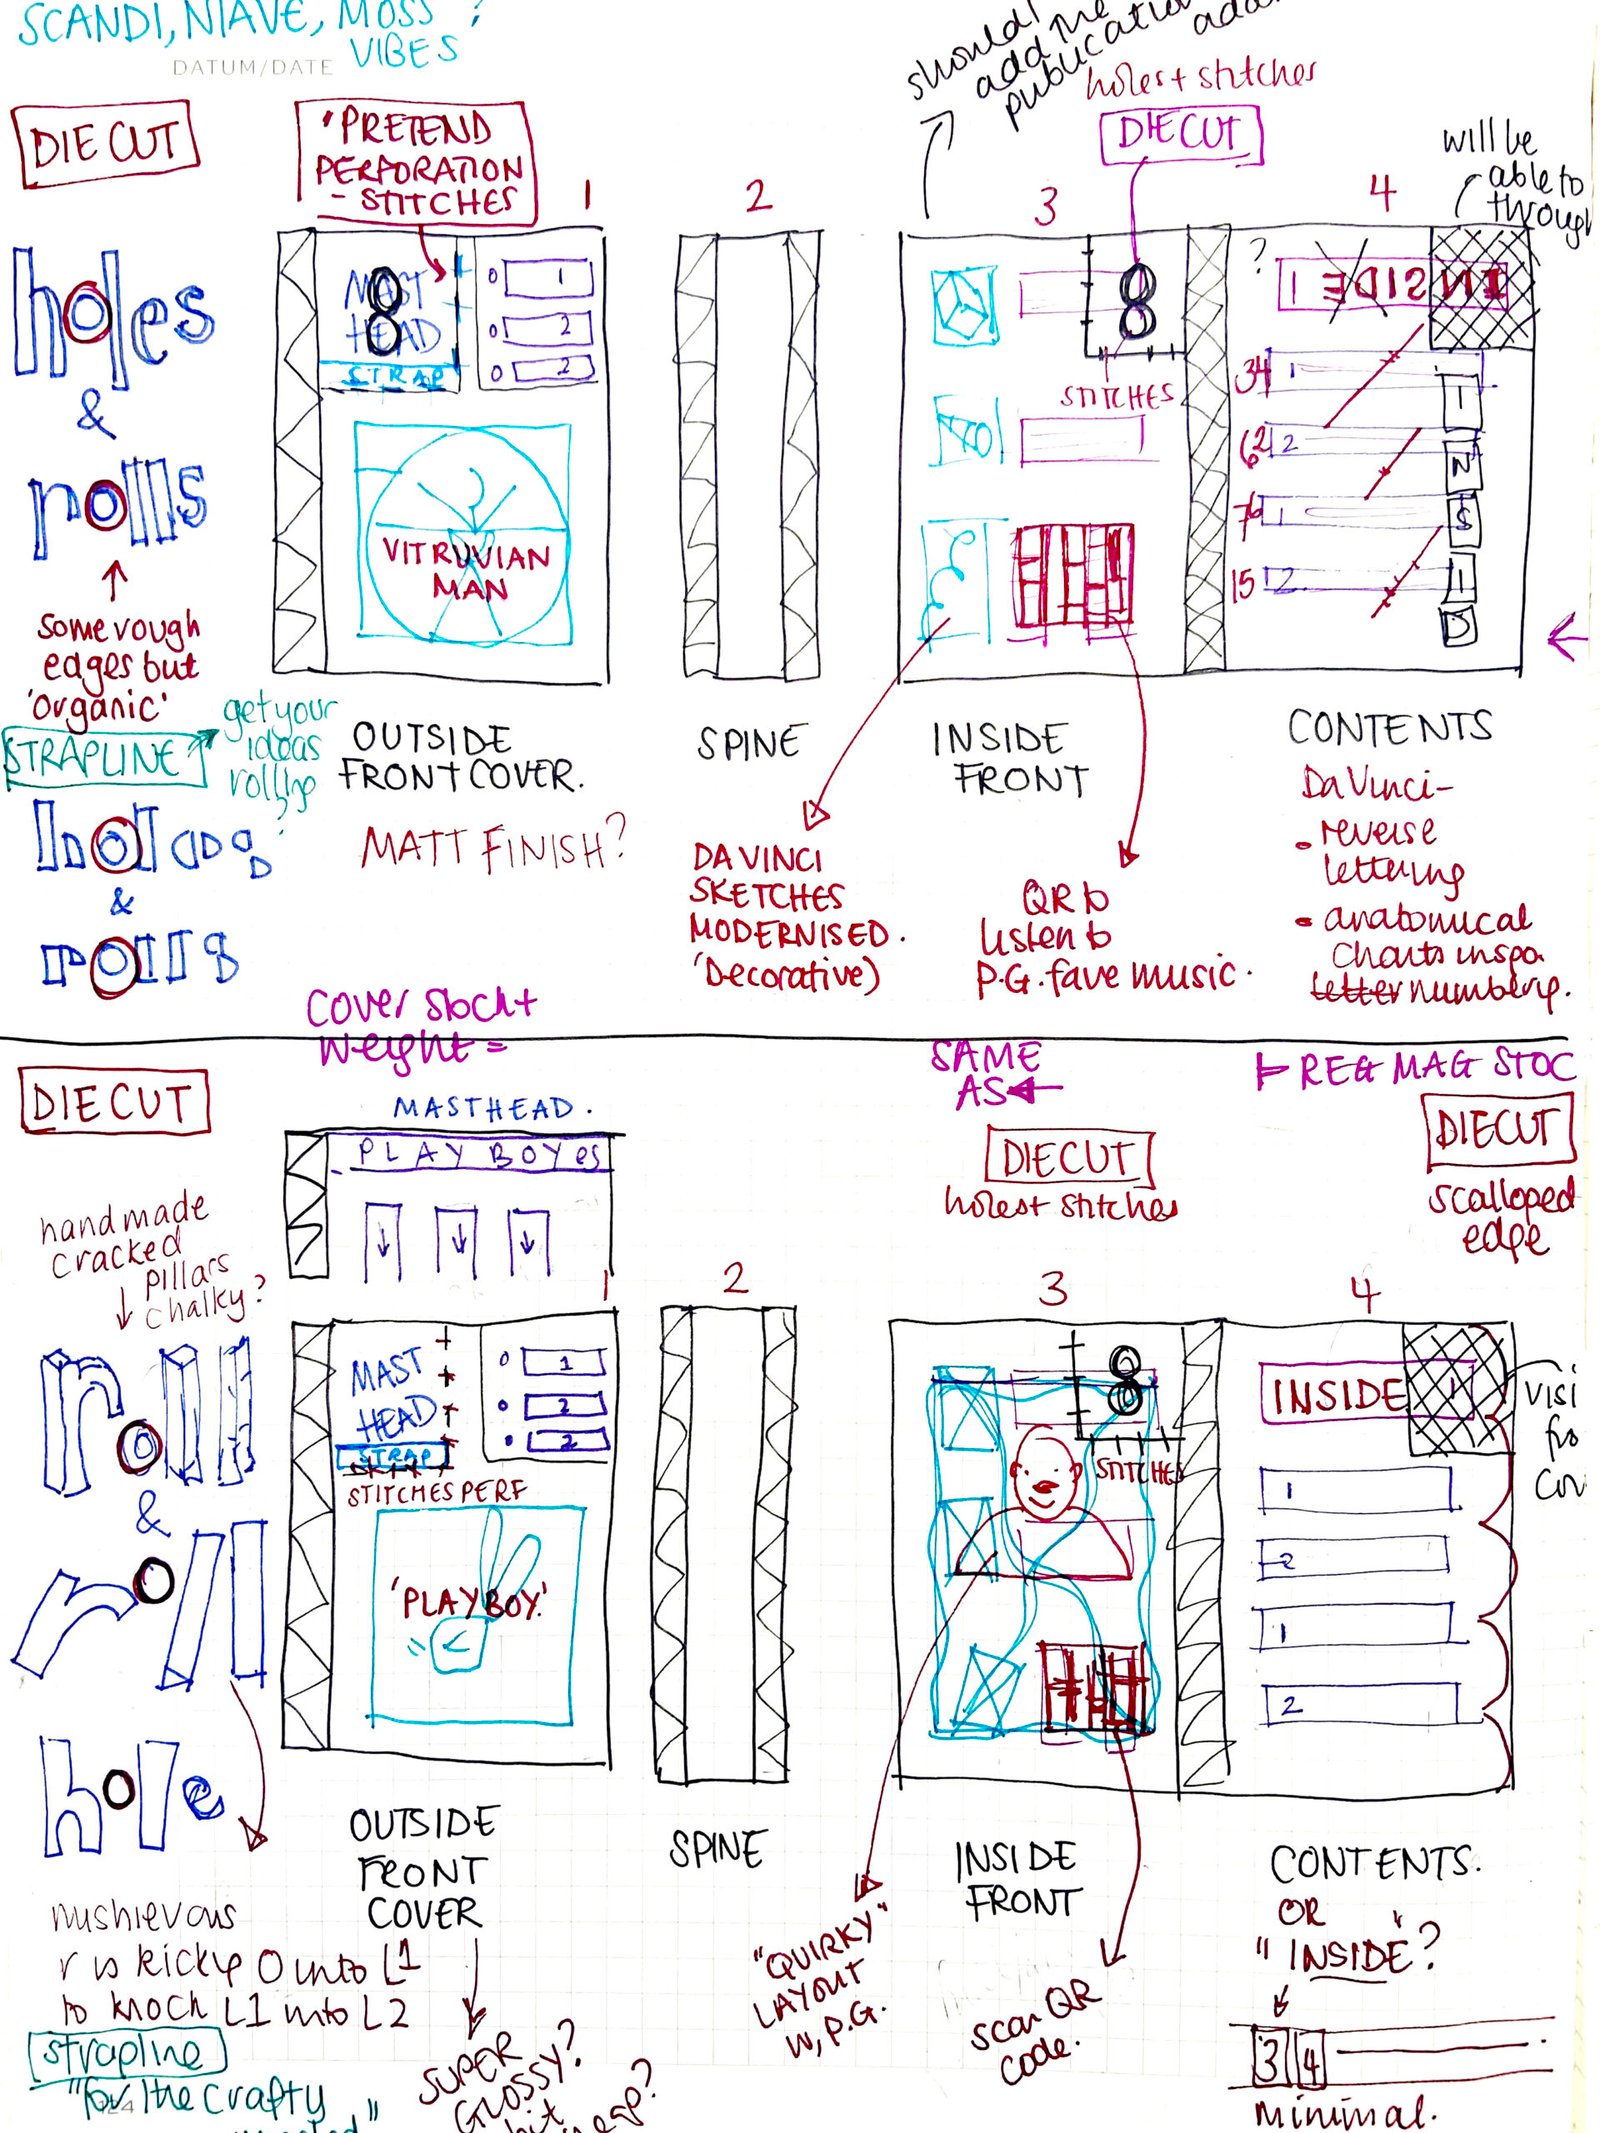 SCANDI, NIAVE, MOSS ?
VIBES
DATUM/DATE
should I
add the
publication
holes + stitches
DIE CUT
'PRETEND
PERFORATION
- STITCHES
DIE CUT
will be
able to
through
1
2
3
4
holes
&
rolls
MAST
HEAD
STRAP
1
2
2
8
STITCHES
?
1 INSIDE
34 1
62 2
76 1
15 2
I
N
S
I
D
VITRUVIAN
MAN
some rough
edges but
'organic'
STRAPLINE
get your
ideas
rolling
OUTSIDE
FRONT COVER.
SPINE
INSIDE
FRONT
CONTENTS
MATT FINISH?
DA VINCI
SKETCHES
MODERNISED.
'Decorative)
QR to
listen to
P.G. fave music.
Da Vinci-
• reverse
lettering
• anatomical
Charts inspo
letter numbering.
&
rolls
Cover stock +
weight =
SAME
AS
REG MAG STOC
DIE CUT
MASTHEAD.
PLAY BOYes
DIE CUT
holes + stitches
DIECUT
scalloped
edge
handmade
cracked
pillars
chalky?
1
2
3
4
roll
&
roll
hole
MAST
HEAD
STRAP
STITCHES PERF
1
2
2
8
STITCHES
INSIDE 1
1
2
1
2
visi
fro
Cov
'PLAYBOY'
OUTSIDE
FRONT
COVER
SPINE
INSIDE
FRONT
CONTENTS.
OR
"INSIDE"?
mishievous
r is kicking O into L1
to knock L1 into L2
strapline
"for the crafty
SUPER
GLOSSY?
bit
"QUIRKY"
LAYOUT
w, P.G.
scan QR
code.
3 4
minimal.